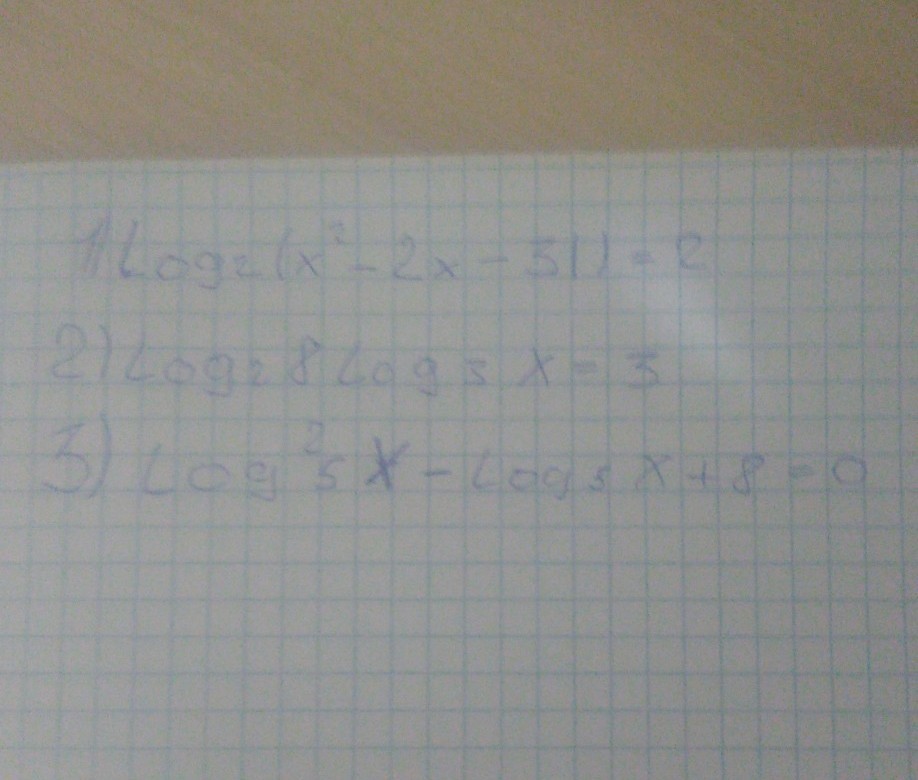 1) Log₂(x² - 2x - 31) = 2
2) Log₂8 Log₃ x = 3
3) Log²₅ x - Log₅ x + 8 = 0